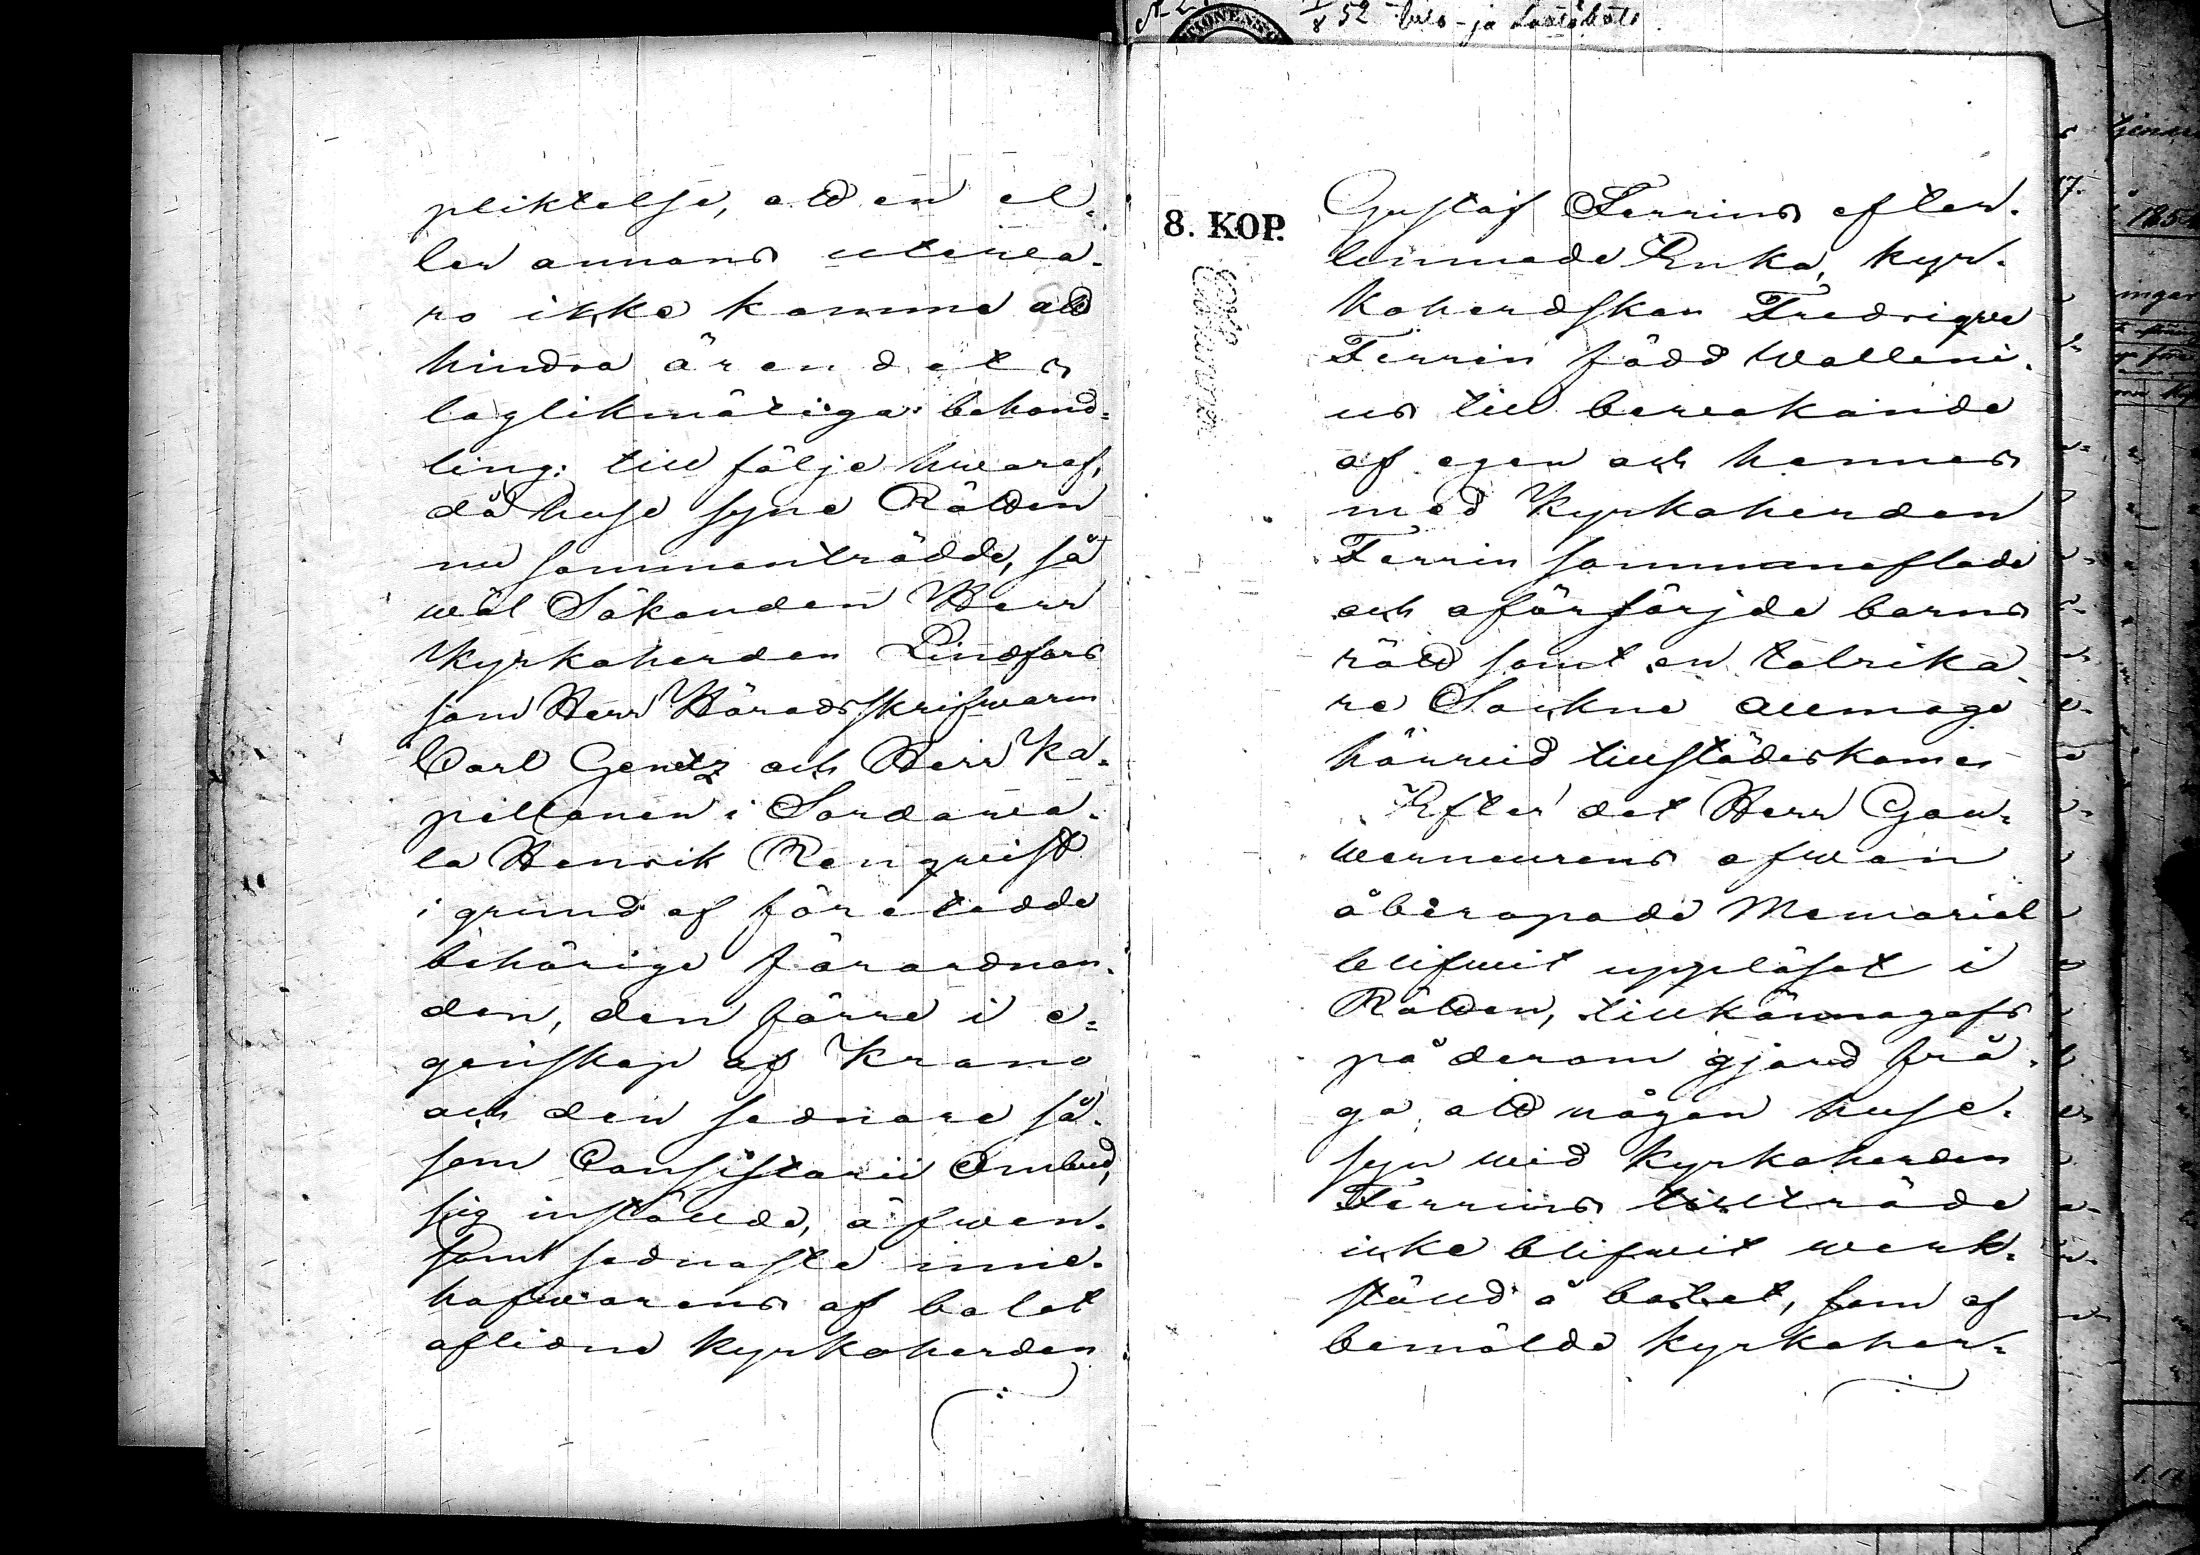 pliktelse, att en el-
ler annans uteva-
ro ikke komme att
hindra ärendets
laglikmätiga behand-
ling: till följe hwaraf,
då huse syne Rätten
nu sammanträdde, så
wäl Sökanden Herr
Kyrkoherden Lindfors
som Herr Häradsskrifwaren
Carl Gentz och Herr Ka-
pellanen i Sordawa-
la Henrik Renqvist
i grund af företedde
behörige förordnan-
den, den förre i e-
genskap af Krono
och den sednare så-
som Consistorii Ombud,
sig inställde, äfwen-
som sednaste inne-
hafwarens af bolet
aflidne Kyrkoherden
8. KOP.
Gustaf Ferrins efter-
lemnade Enka, Kyr-
koherdskan Fredrique
Ferrin född Walleni-
us till bevakande
af egen och hennes
med Kyrkoherden
Ferrin sammanaflade
och oförsörjde barns
rätt samt en talrika-
re Sockne Allmoge
härwid tillstädeskomme
Efter det Herr Gou-
werneurens ofwan
åberopade Memorial
blifwit uppläsat i
Rätten, tillkännagafs
på derom gjord frå-
ga, att någon huse-
syn wid Kyrkoherden
Ferrins tillträde
icke blifwit werk-
ställd å bolet, som af
bemälde Kyrkoher-